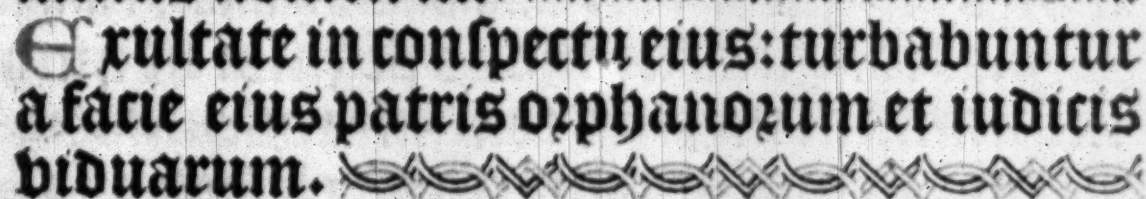 Exultate in conſpectu eius: turbabuntur
a facie eius patris orphanorum et iudicis
viduarum.